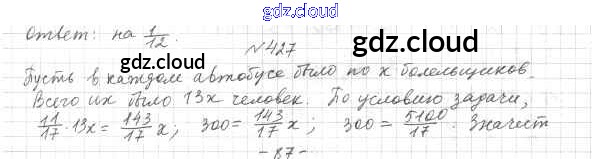 gdz.cloud
Ответ: на 1/12.
gdz.cloud
N 427
gdz.cloud
Пусть в каждом автобусе было по x болельщиков.
Всего их было 13x человек. По условию задачи,
11/17 · 13x = 143/17 x; 300 = 143/17 x; 300 = 5100/17. Значит
- 87 -
gdz.cloud